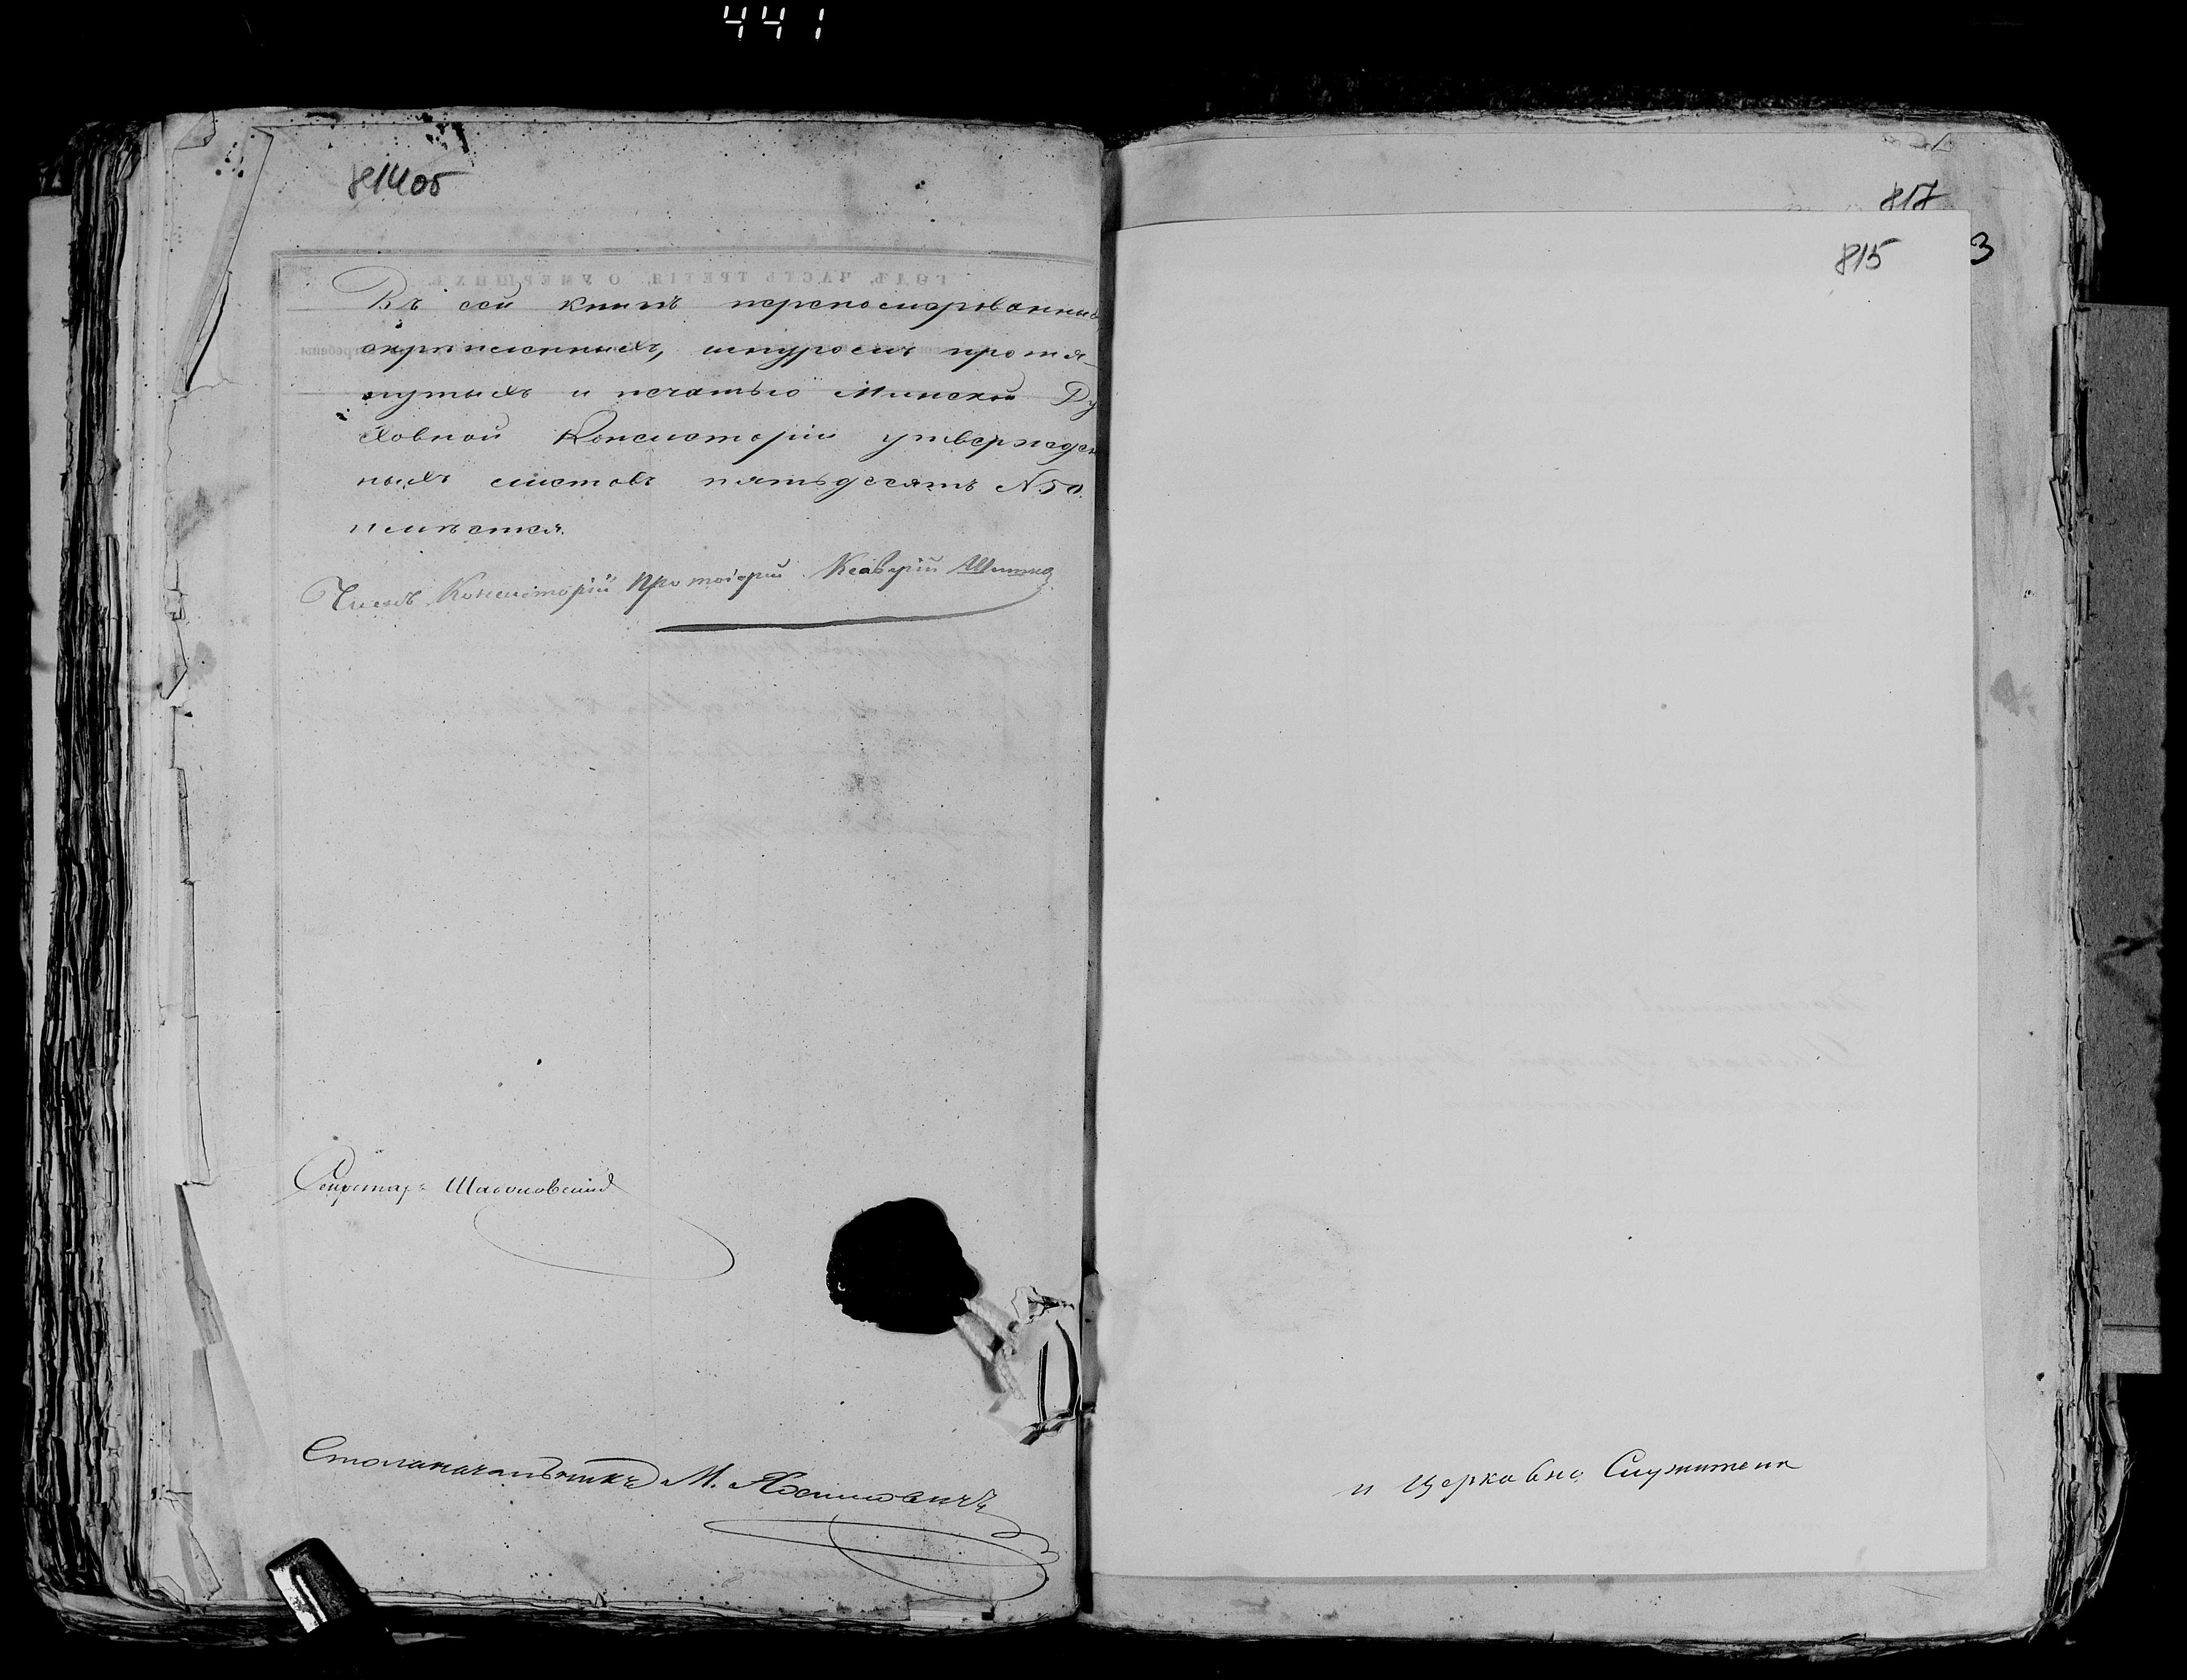 441
814об
Въ сей книгѣ переномерованныхъ
скрѣпленныхъ, шнуромъ протя-
нутыхъ и печатью Минской Ду
ховной Консисторіи утвержден
ныхъ листовъ пятьдесятъ N. 50.
имѣется.
Членъ Консисторіи Протоіерей Ксаверій
Секретарь
Столоначальникъ М.
817
3
815
и Церковно Служители